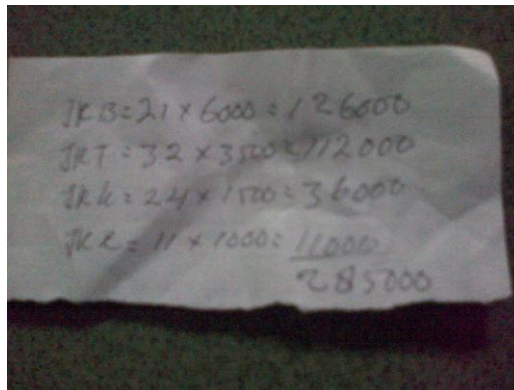 JKB=21 x 6000 = 126000
JKT = 32 x 3500 = 112000
JKK = 24 x 1500 = 36000
JKR = 11 x 1000 = 11000
285000